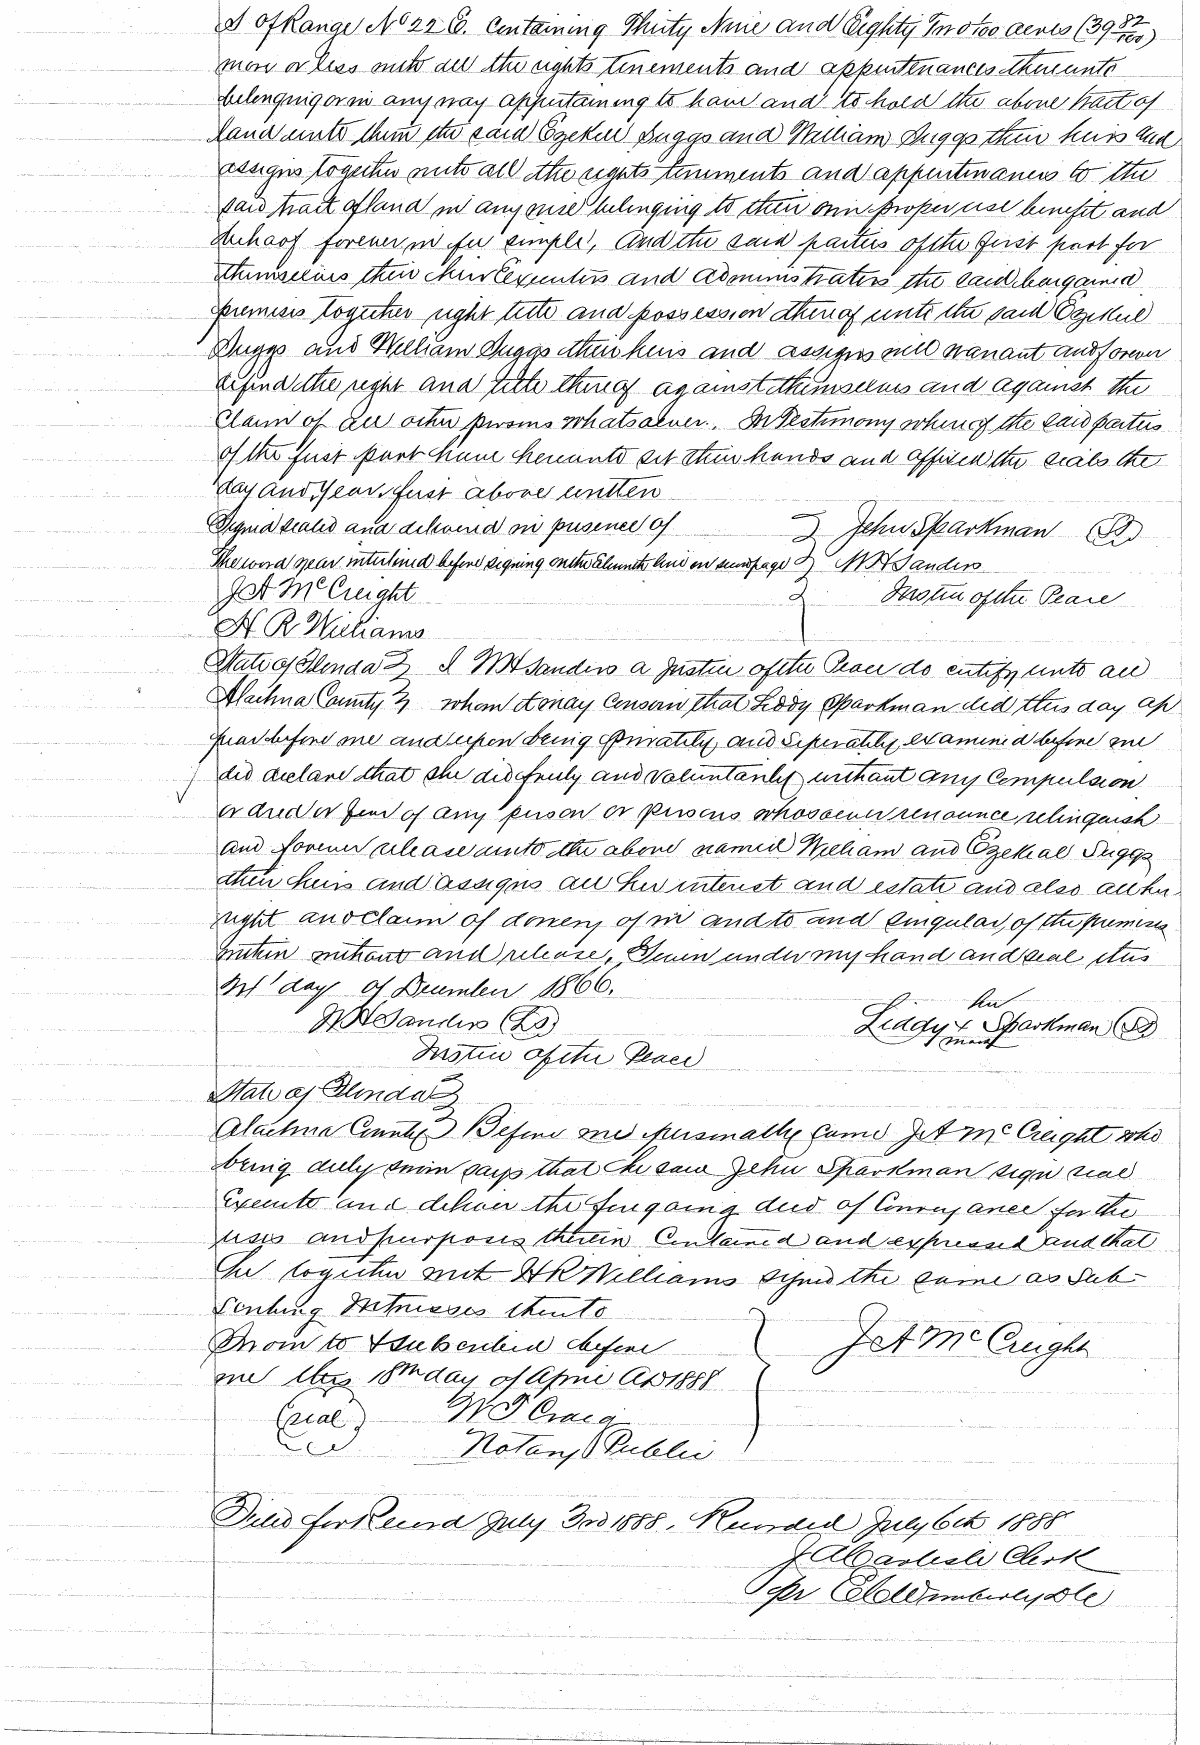 S of Range No 22 E. Containing Thirty Nine and Eighty Two 100 acres (39 82/100)
more or less with all the rights tenements and appurtenances thereunto
belonging or in any way appertaining to have and to hold the above tract of
land unto them the said Ezekiel Suggs and William Suggs their heirs and
assigns together with all the rights tenements and appurtinances to the
said tract of land in any wise belonging to their own proper use benefit and
behoof forever, in fee simple, And the said parties of the first part for
themselves their heirs Executors and Administrators the said bargained
premises together right title and possession thereof unto the said Ezekiel
Suggs and William Suggs their heirs and assigns will warrant and forever
defend the right and title thereof against themselves and against the
claim of all other persons whatsoever. In Testimony whereof the said parties
of the first part have hereunto set their hands and affixed the seals the
day and year first above written
Signed sealed and delivered in presence of John Sparkman (LS)
The word year interlined before signing on the Eleventh line on second page W H Sanders
J A McCreight Justice of the Peace
H R Williams
State of Florida } I W H Sanders a Justice of the Peace do certify unto all
Alachua County } whom it may concern that Liddy Sparkman did this day ap
pear before me and upon being privately and seperately examined before me
did declare that she did freely and voluntarily without any Compulsion
or dread or fear of any person or persons whosoever renounce, relinquish
and forever release unto the above named William and Ezekial Suggs
their heirs and assigns all her interest and estate and also all her
right and claim of dowery of in and to and singular, of the premises
within without and release, Given under my hand and seal this
1st day of December 1866.
W H Sanders (LS) Liddy her x mark Sparkman (LS)
Justice of the Peace
State of Florida }
Alachua County } Before me personally came J A McCreight who
being duly sworn says that he saw John Sparkman sign seal
Execute and deliver the foregoing deed of Conveyance for the
uses and purposes therein Contained and expressed and that
he together with H R Williams signed the same as Sub-
scribing Witnesses thereto
Sworn to & subscribed before J A McCreight
me this 18th day of April AD 1888
(seal) W T Craig
Notary Public
Filed for Record July 3rd 1888. Recorded July 6th 1888
J A Carlisle Clerk
per Wimberly DC